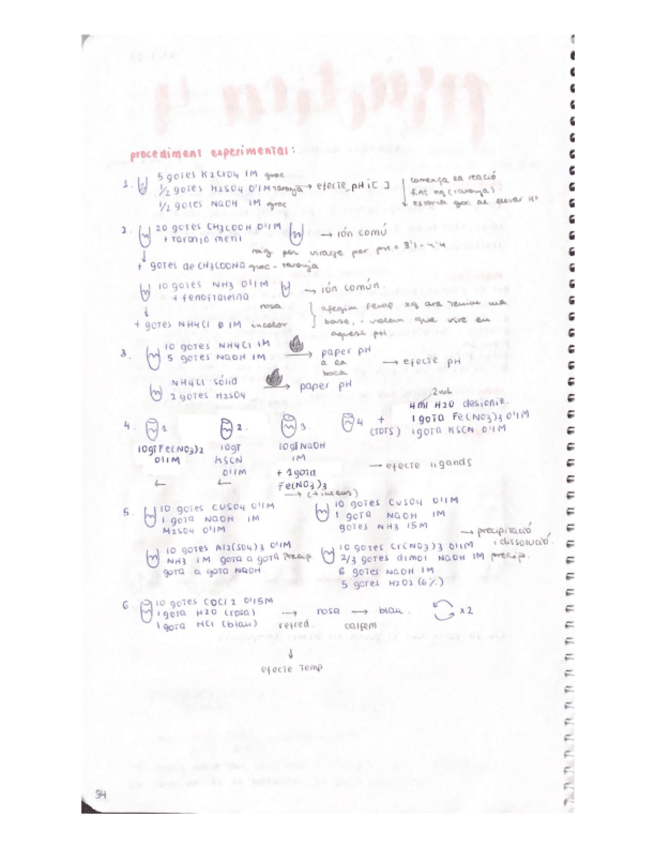 procediment experimental:
1. 5 gotes K2CrO4 1M groc
1/2 gotes H2SO4 0'1M taronja → efecte pH i [ ]
1/2 gotes NaOH 1M groc
comença la reacció
fins eq (taronja)
2. 20 gotes CH3COOH 0'1M
+ taronja metil → ión comú
roig per viratge per pH = 3'1-4'4
+ gotes de CH3COONa groc - taronja
10 gotes NH3 0'1M → ión común
+ fenolftaleina
rosa
+ gotes NH4Cl 1M incolor
afegim fenof. xq ara tenim una
base, i volem que viri en
aquest pH
3. 10 gotes NH4Cl 1M → paper pH
5 gotes NaOH 1M
a la boca
→ efecte pH
NH4Cl sòlid → paper pH
2 gotes H2SO4
4. 1 2. 3 4 (TOTS) +
4ml H2O desionit.
1 gota Fe(NO3)3 0'1M
1 gota KSCN 0'1M
10gt Fe(NO3)2 0'1M
10gt KSCN 0'1M
10gt NaOH 1M
+ 1 gota Fe(NO3)3
→ efecte ligands
→ (+ intens)
5. 10 gotes CuSO4 0'1M
1 gota NaOH 1M
H2SO4 0'1M
10 gotes CuSO4 0'1M
1 gota NaOH 1M
gotes NH3 15M
→ precipitació i dissolució.
10 gotes Al2(SO4)3 0'1M
NH3 1M gota a gota precip
gota a gota NaOH
10 gotes Cr(NO3)3 0'1M
2/3 gotes NaOH 1M precip.
6 gotes NaOH 1M
5 gotes H2O2 (6%)
6 10 gotes COCl2 0'15M
1 gota H2O (rosa)
1 gota HCl (blau)
→ rosa → blau. x2
refred. calfem
↓
efecte Temp
34